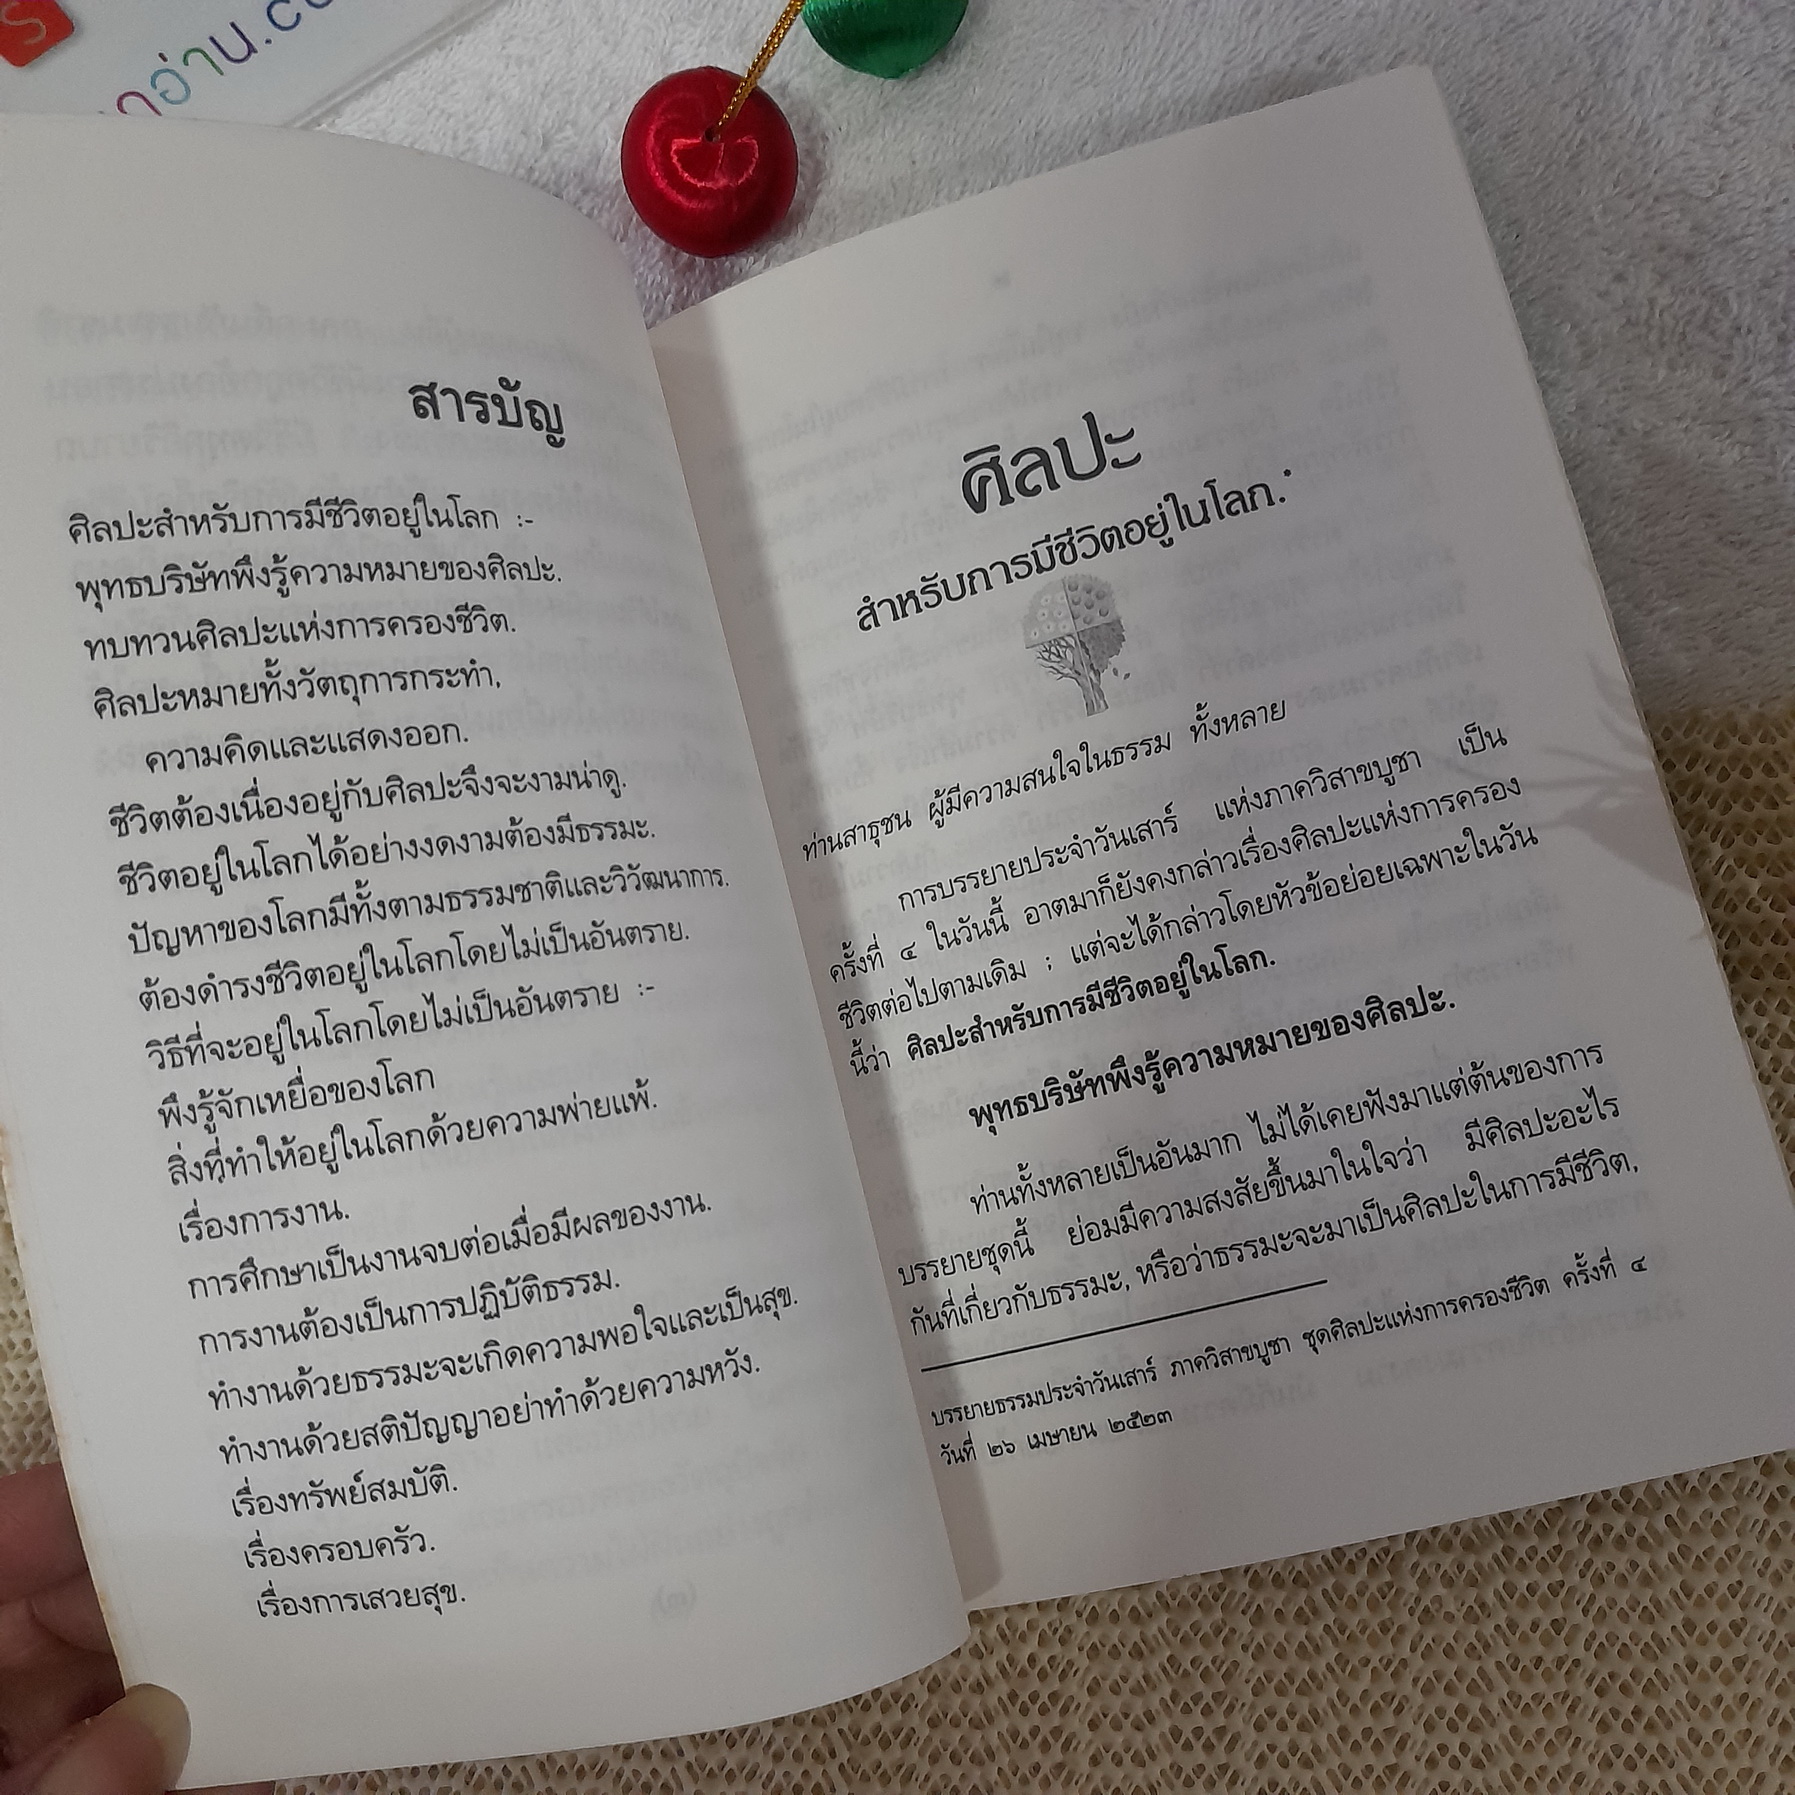 อ่าน.co
สารบัญ
ศิลปะสำหรับการมีชีวิตอยู่ในโลก :-
พุทธบริษัทพึงรู้ความหมายของศิลปะ.
ทบทวนศิลปะแห่งการครองชีวิต.
ศิลปะหมายทั้งวัตถุการกระทำ,
ความคิดและแสดงออก.
ชีวิตต้องเนื่องอยู่กับศิลปะจึงจะงามน่าดู.
ชีวิตอยู่ในโลกได้อย่างงดงามต้องมีธรรมะ.
ปัญหาของโลกมีทั้งตามธรรมชาติและวิวัฒนาการ.
ต้องดำรงชีวิตอยู่ในโลกโดยไม่เป็นอันตราย.
วิธีที่จะอยู่ในโลกโดยไม่เป็นอันตราย :-
พึงรู้จักเหยื่อของโลก
สิ่งที่ทำให้อยู่ในโลกด้วยความพ่ายแพ้.
เรื่องการงาน.
การศึกษาเป็นงานจบต่อเมื่อมีผลของงาน.
การงานต้องเป็นการปฏิบัติธรรม.
ทำงานด้วยธรรมะจะเกิดความพอใจและเป็นสุข.
ทำงานด้วยสติปัญญาอย่าทำด้วยความหวัง.
เรื่องทรัพย์สมบัติ.
เรื่องครอบครัว.
เรื่องการเสวยสุข.
ศิลปะ
สำหรับการมีชีวิตอยู่ในโลก.*
ท่านสาธุชน ผู้มีความสนใจในธรรม ทั้งหลาย
การบรรยายประจำวันเสาร์ แห่งภาควิสาขบูชา เป็น
ครั้งที่ ๔ ในวันนี้ อาตมาก็ยังคงกล่าวเรื่องศิลปะแห่งการครอง
ชีวิตต่อไปตามเดิม ; แต่จะได้กล่าวโดยหัวข้อย่อยเฉพาะในวัน
นี้ว่า ศิลปะสำหรับการมีชีวิตอยู่ในโลก.
พุทธบริษัทพึงรู้ความหมายของศิลปะ.
ท่านทั้งหลายเป็นอันมาก ไม่ได้เคยฟังมาแต่ต้นของการ
บรรยายชุดนี้ ย่อมมีความสงสัยขึ้นมาในใจว่า มีศิลปะอะไร
กันที่เกี่ยวกับธรรมะ, หรือว่าธรรมะจะมาเป็นศิลปะในการมีชีวิต,
บรรยายธรรมประจำวันเสาร์ ภาควิสาขบูชา ชุดศิลปะแห่งการครองชีวิต ครั้งที่ ๔
วันที่ ๒๖ เมษายน ๒๕๒๓